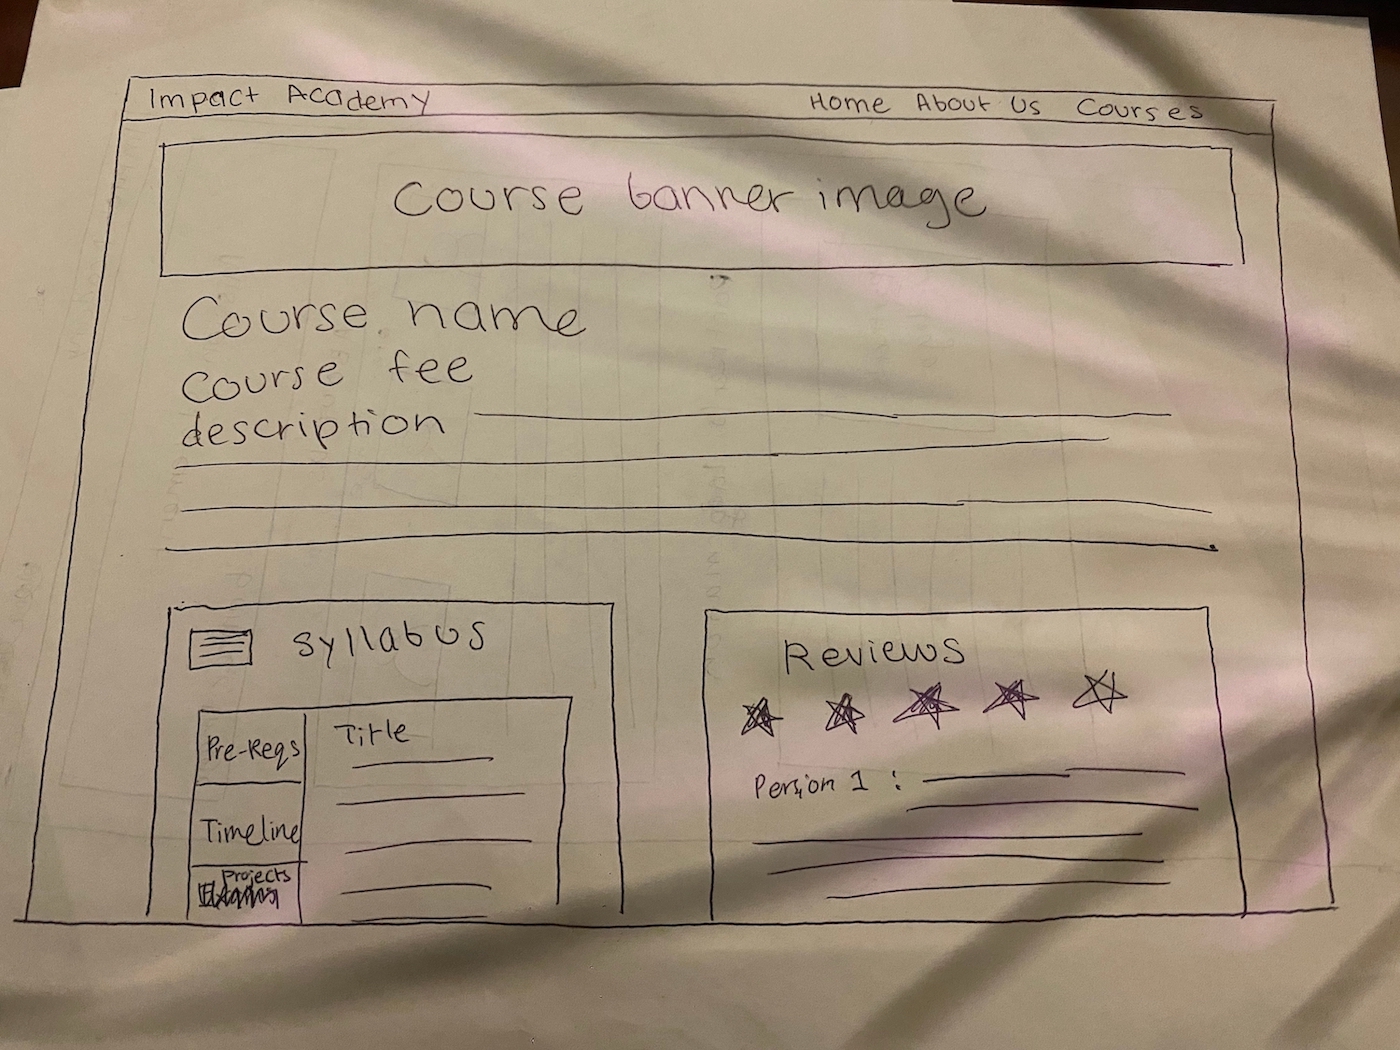 Impact Academy Home About Us Courses
Course banner image
Course name
Course fee
description
Syllabus
Pre-Reqs
Title
Timeline
Projects
Reviews
Person 1 :